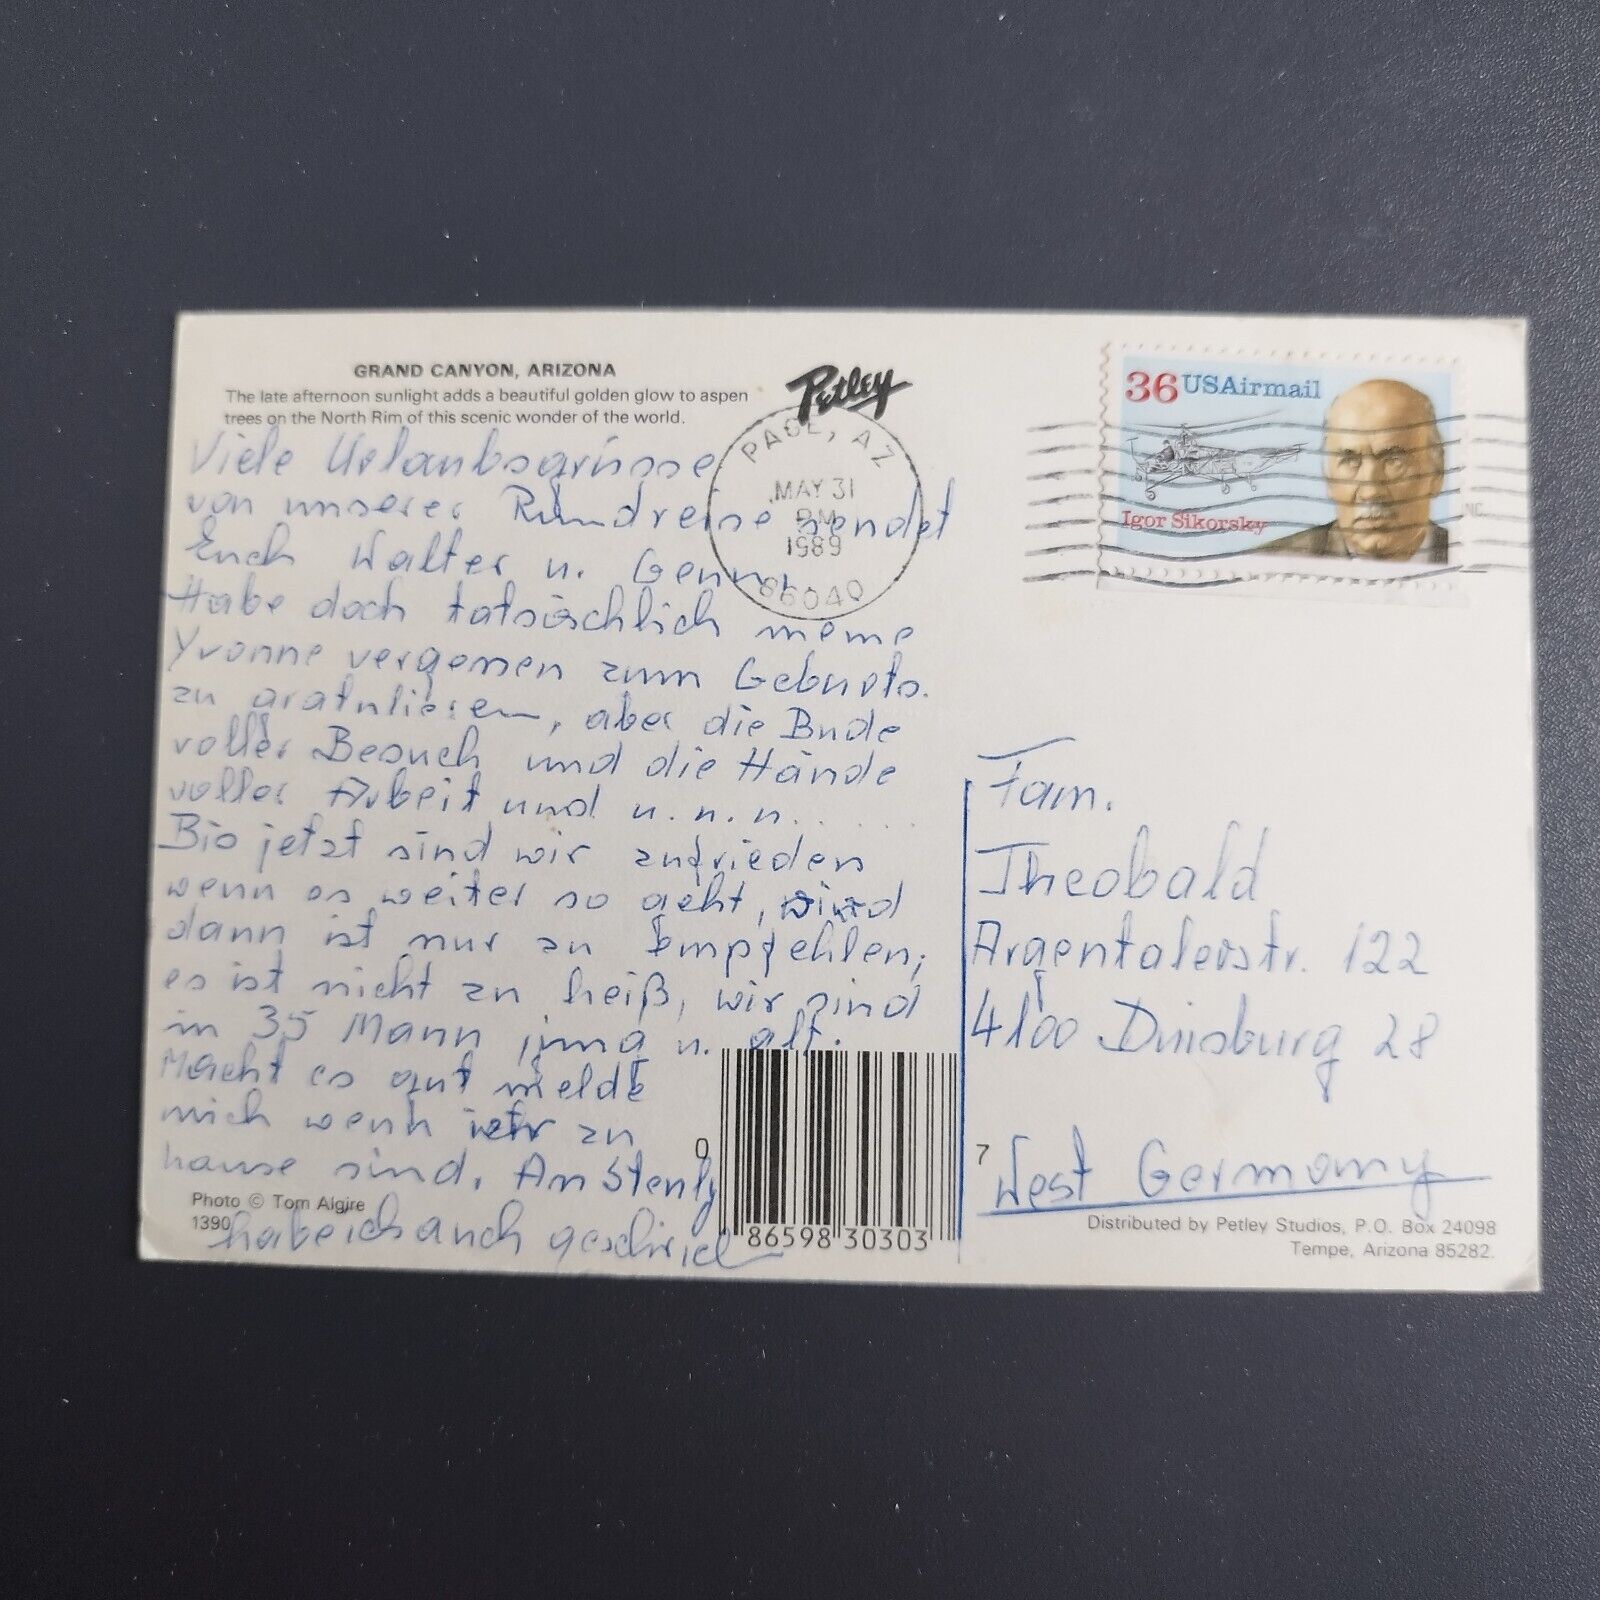 GRAND CANYON, ARIZONA
The late afternoon sunlight adds a beautiful golden glow to aspen
trees on the North Rim of this scenic wonder of the world.
Petley
Viele Urlaubsgrüsse
von unserer Rundreise sendet
Euch Walter u.
Habe doch tatsächlich meine
Yvonne vergessen zum Geburts.
zu gratulieren, aber die Bude
voller Besuch und die Hände
voller Arbeit und u.n.n......
Bis jetzt sind wir zufrieden
wenn es weiter so geht, wird
dann ist nur zu Empfehlen;
es ist nicht zu heiß, wir sind
in 35 Mann jung u. alt.
Macht es gut melde
mich wenn wir zu
hause sind. An Stenly
habe ich auch geschrieb
Photo © Tom Algire
1390
0
86598 30303
7
PAGE, AZ
MAY 31
PM
1989
86040
36 USAirmail
Igor Sikorsky
Fam.
Theobald
Argentalerstr. 122
4100 Duisburg 28
West Germany
Distributed by Petley Studios, P.O. Box 24098
Tempe, Arizona 85282.